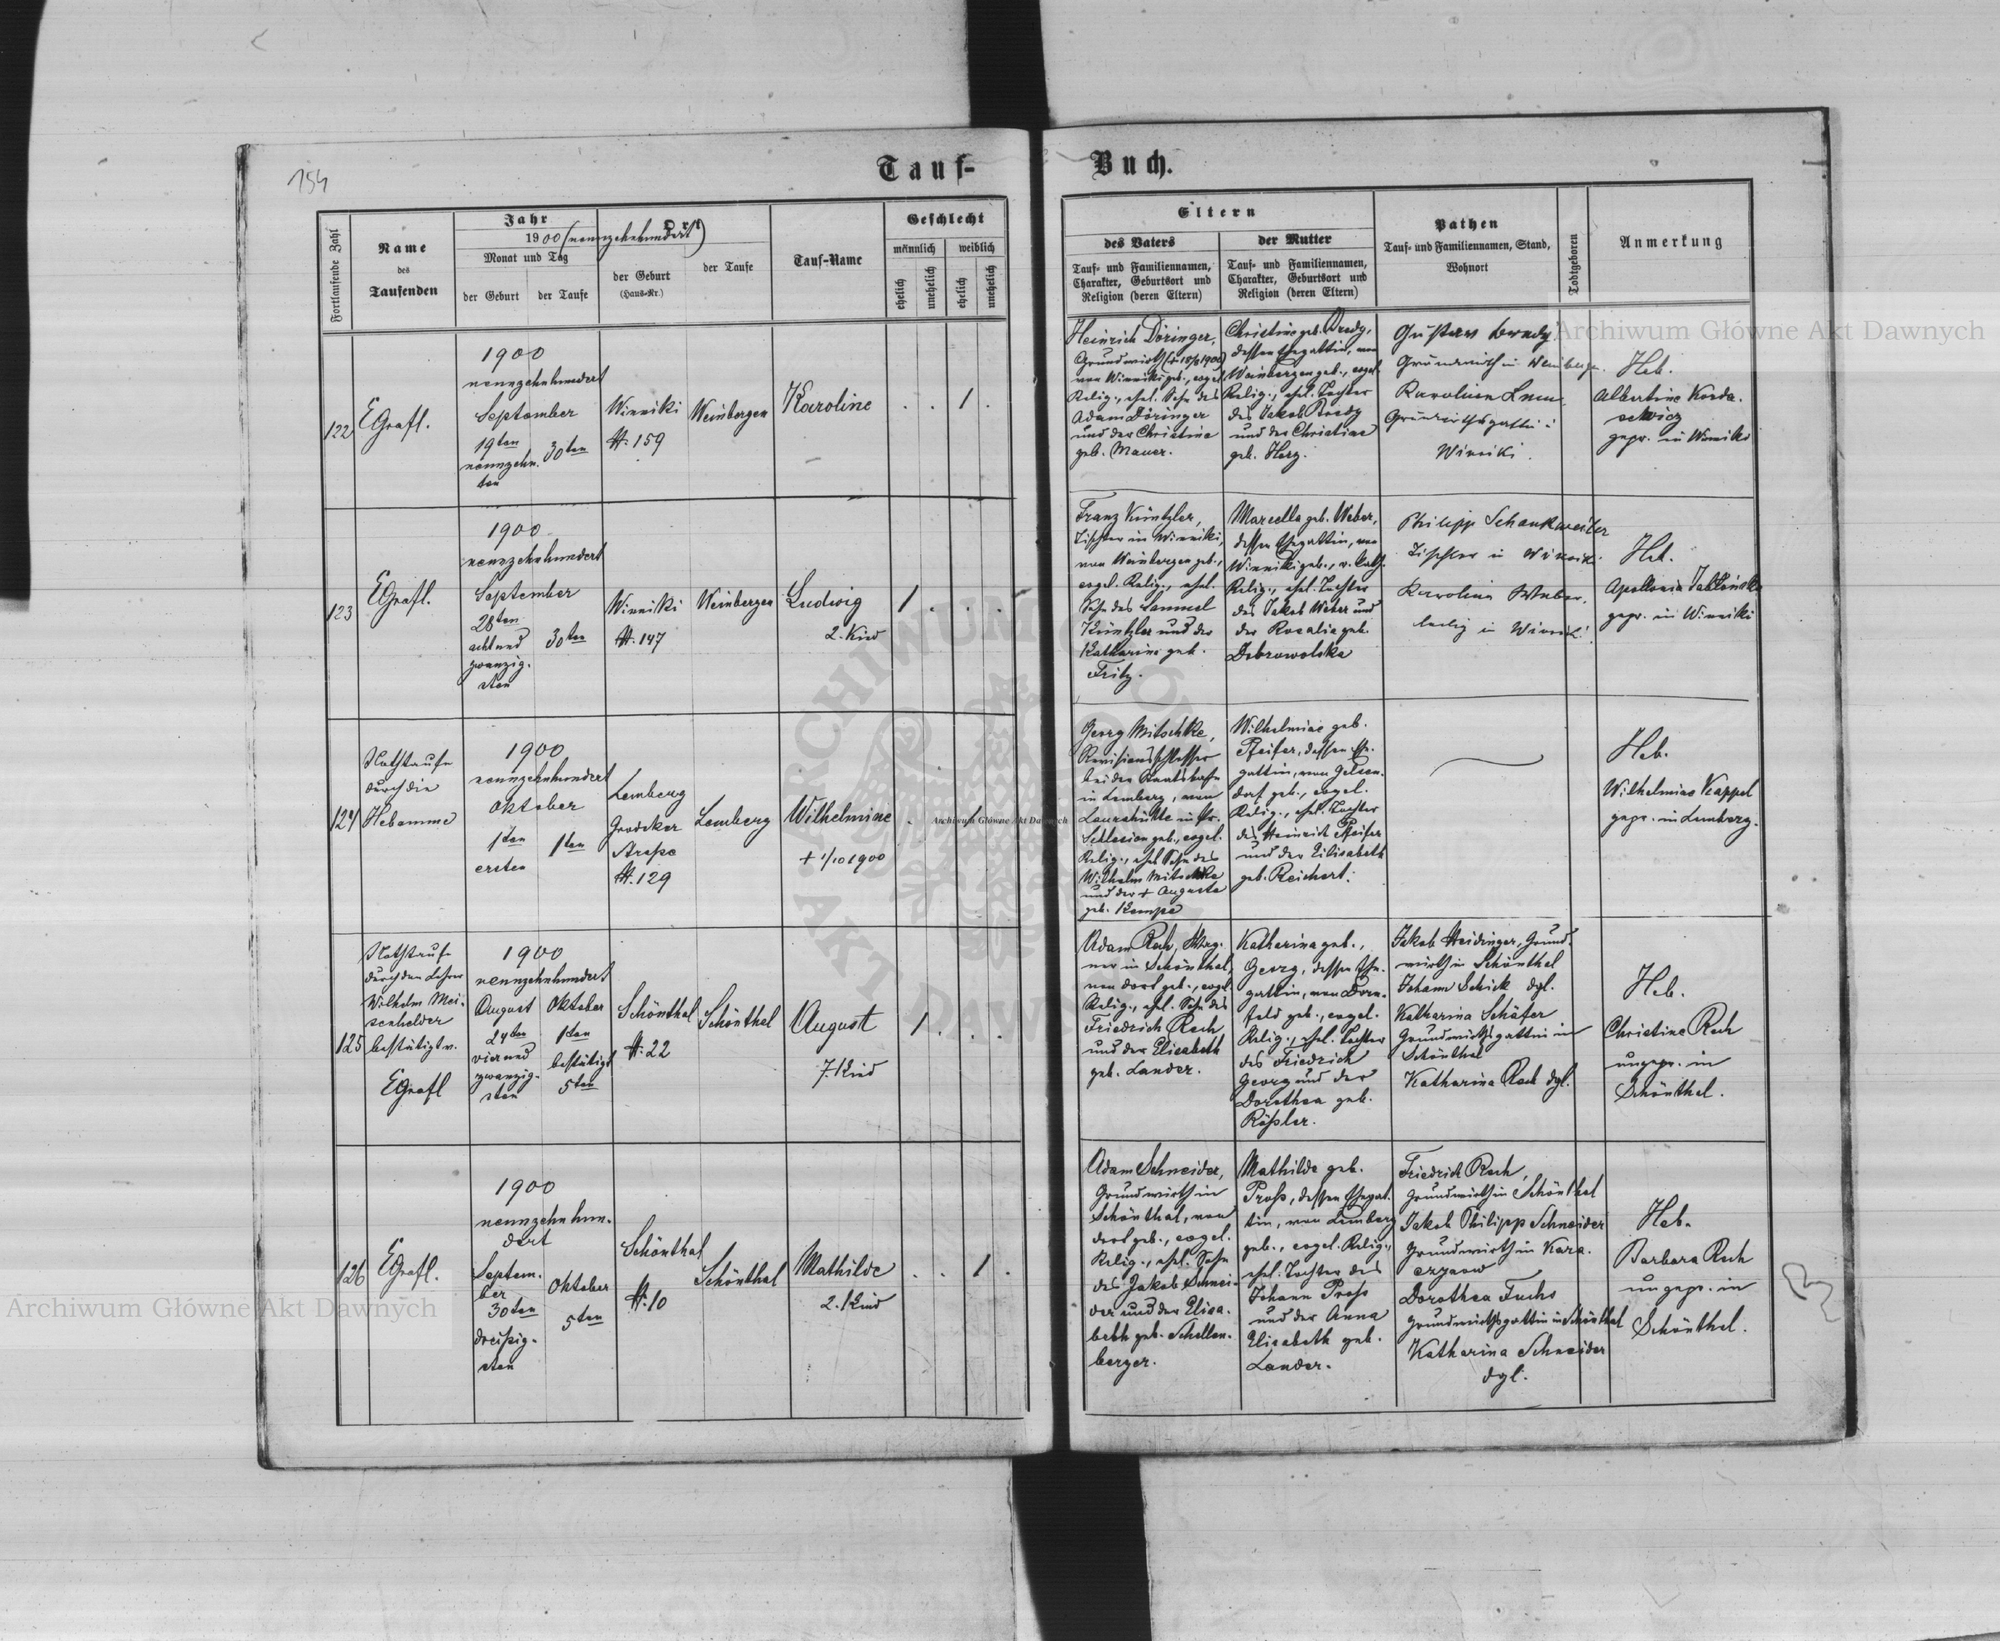 154
Tauf-
Buch.
Fortlaufende Zahl
Name
des
Taufenden
Jahr
1900 (neunzehnhundert)
Monat und Tag
der Geburt
der Taufe
Ort
der Geburt
(Haus-Nr.)
der Taufe
Tauf-Name
Geschlecht
männlich
weiblich
ehelich
unehelich
ehelich
unehelich
Eltern
des Vaters
Tauf- und Familiennamen,
Charakter, Geburtsort und
Religion (deren Eltern)
der Mutter
Tauf- und Familiennamen,
Charakter, Geburtsort und
Religion (deren Eltern)
Pathen
Tauf- und Familiennamen, Stand,
Wohnort
Todtgeboren
Anmerkung
122
EGrafl.
1900
neunzehnhundert
September
19ten
neunzehn.
ten
30ten
Winniki
N. 159
Weinbergen
Karoline
1
Heinrich Döringer,
Grundwirth
von Winniki geb., evgel.
Relig., ehel. Sohn des
Adam Döringer
und der Christina
geb. Mauer.
Christine geb. Bredy,
dessen Ehegattin, von
Weinbergen geb., evgel.
Relig., ehel. Tochter
des Jakob Bredy
und der Christine
geb. Herz.
Gustav Bredy
Grundwirth in Weinbergen.
Grundwirthsgattin
Winniki.
Heb.
Albertine Korda-
sewicz
gepr. in Winniki
123
EGrafl.
1900
neunzehnhundert
September
28ten
acht und
zwanzig-
sten
30ten
Winniki
N. 147
Weinbergen
Ludwig
2. Kind
1
Franz Küntzler,
Tischler in Winniki,
von Weinbergen geb.,
evgel. Relig., ehel.
Sohn des Samuel
Küntzler und der
Katharina geb.
Fritz.
Marcella geb. Weber,
dessen Ehegattin, von
Winniki geb., r. kath.
Relig., ehel. Tochter
des Jakob Weber und
der Rosalia geb.
Dobrowolska
Philipp Schankweiler
Tischler in Winniki
Karolina Weber,
ledig in Winniki.
Heb.
Apollonia Jablońska
gepr. in Winniki
124
Nothtaufe
durch die
Hebamme
1900
neunzehnhundert
Oktober
1ten
ersten
1ten
Lemberg
Grodeker
Strasse
N. 129
Lemberg
Wilhelmine
+ 1/10 1900
1
Georg Mitschke,
Revisionsschlosser
bei der Staatsbahn
in Lemberg, von
Laurahütte in Pr.
Schlesien geb., evgel.
Relig., ehel. Sohn des
Wilhelm Mitschke
und der + Auguste
geb. Kempe
Wilhelmine geb.
Pfeifer, dessen Ehe-
gattin, von Gelsen-
dorf geb., evgel.
Relig., ehel. Tochter
des Heinrich Pfeifer
und der Elisabeth
geb. Reichert.
Heb.
Wilhelmine Kappel
gepr. in Lemberg.
125
Nothtaufe
durch den Lehrer
Wilhelm Mei-
senhelder
bestätigt v.
EGrafl
1900
neunzehnhundert
August
24ten
vier und
zwanzig-
sten
Oktober
1ten
bestätigt
5ten
Schönthal
N. 22
Schönthal
August
7. Kind
1
Adam Rech,
ner in Schönthal,
von dort geb., evgel.
Relig., ehel. Sohn des
Friedrich Rech
und der Elisabeth
geb. Lander.
Katharina geb.,
Georg, dessen Ehe-
gattin, von Dorn-
feld geb., evgel.
Relig., ehel. Tochter
des Friedrich
Georg und der
Dorothea geb.
Rößler.
Jakob Heidinger, Grund-
wirth in Schönthal
Johann Schick dgl.
Katharina Schäfer
Grundwirthsgattin in
Schönthal
Katharina Rech dgl.
Heb.
Christine Rech
ungepr. in
Schönthal.
126
EGrafl.
1900
neunzehnhun-
dert
Septem-
ber
30ten
dreißig-
sten
Oktober
5ten
Schönthal
N. 10
Schönthal
Mathilde
2. Kind
1
Adam Schneider,
Grundwirth in
Schönthal, von
dort geb., evgel.
Relig., ehel. Sohn
des Jakob Schnei-
der und der Elisa-
beth geb. Schellen-
berger.
Mathilde geb.
Proß, dessen Ehegat-
tin, von Lemberg
geb., evgel. Relig.,
ehel. Tochter des
Johann Proß
und der Anna
Elisabeth geb.
Lander.
Friedrich Rech,
Grundwirth in Schönthal
Jakob Philipp Schneider
Grundwirth in Kara-
czynow
Dorothea Fuchs
Grundwirthsgattin in Schönthal
Katharina Schneider
dgl.
Heb.
Barbara Rech
ungepr. in
Schönthal.
Archiwum Główne Akt Dawnych
Archiwum Główne Akt Dawnych
Archiwum Główne Akt Dawnych